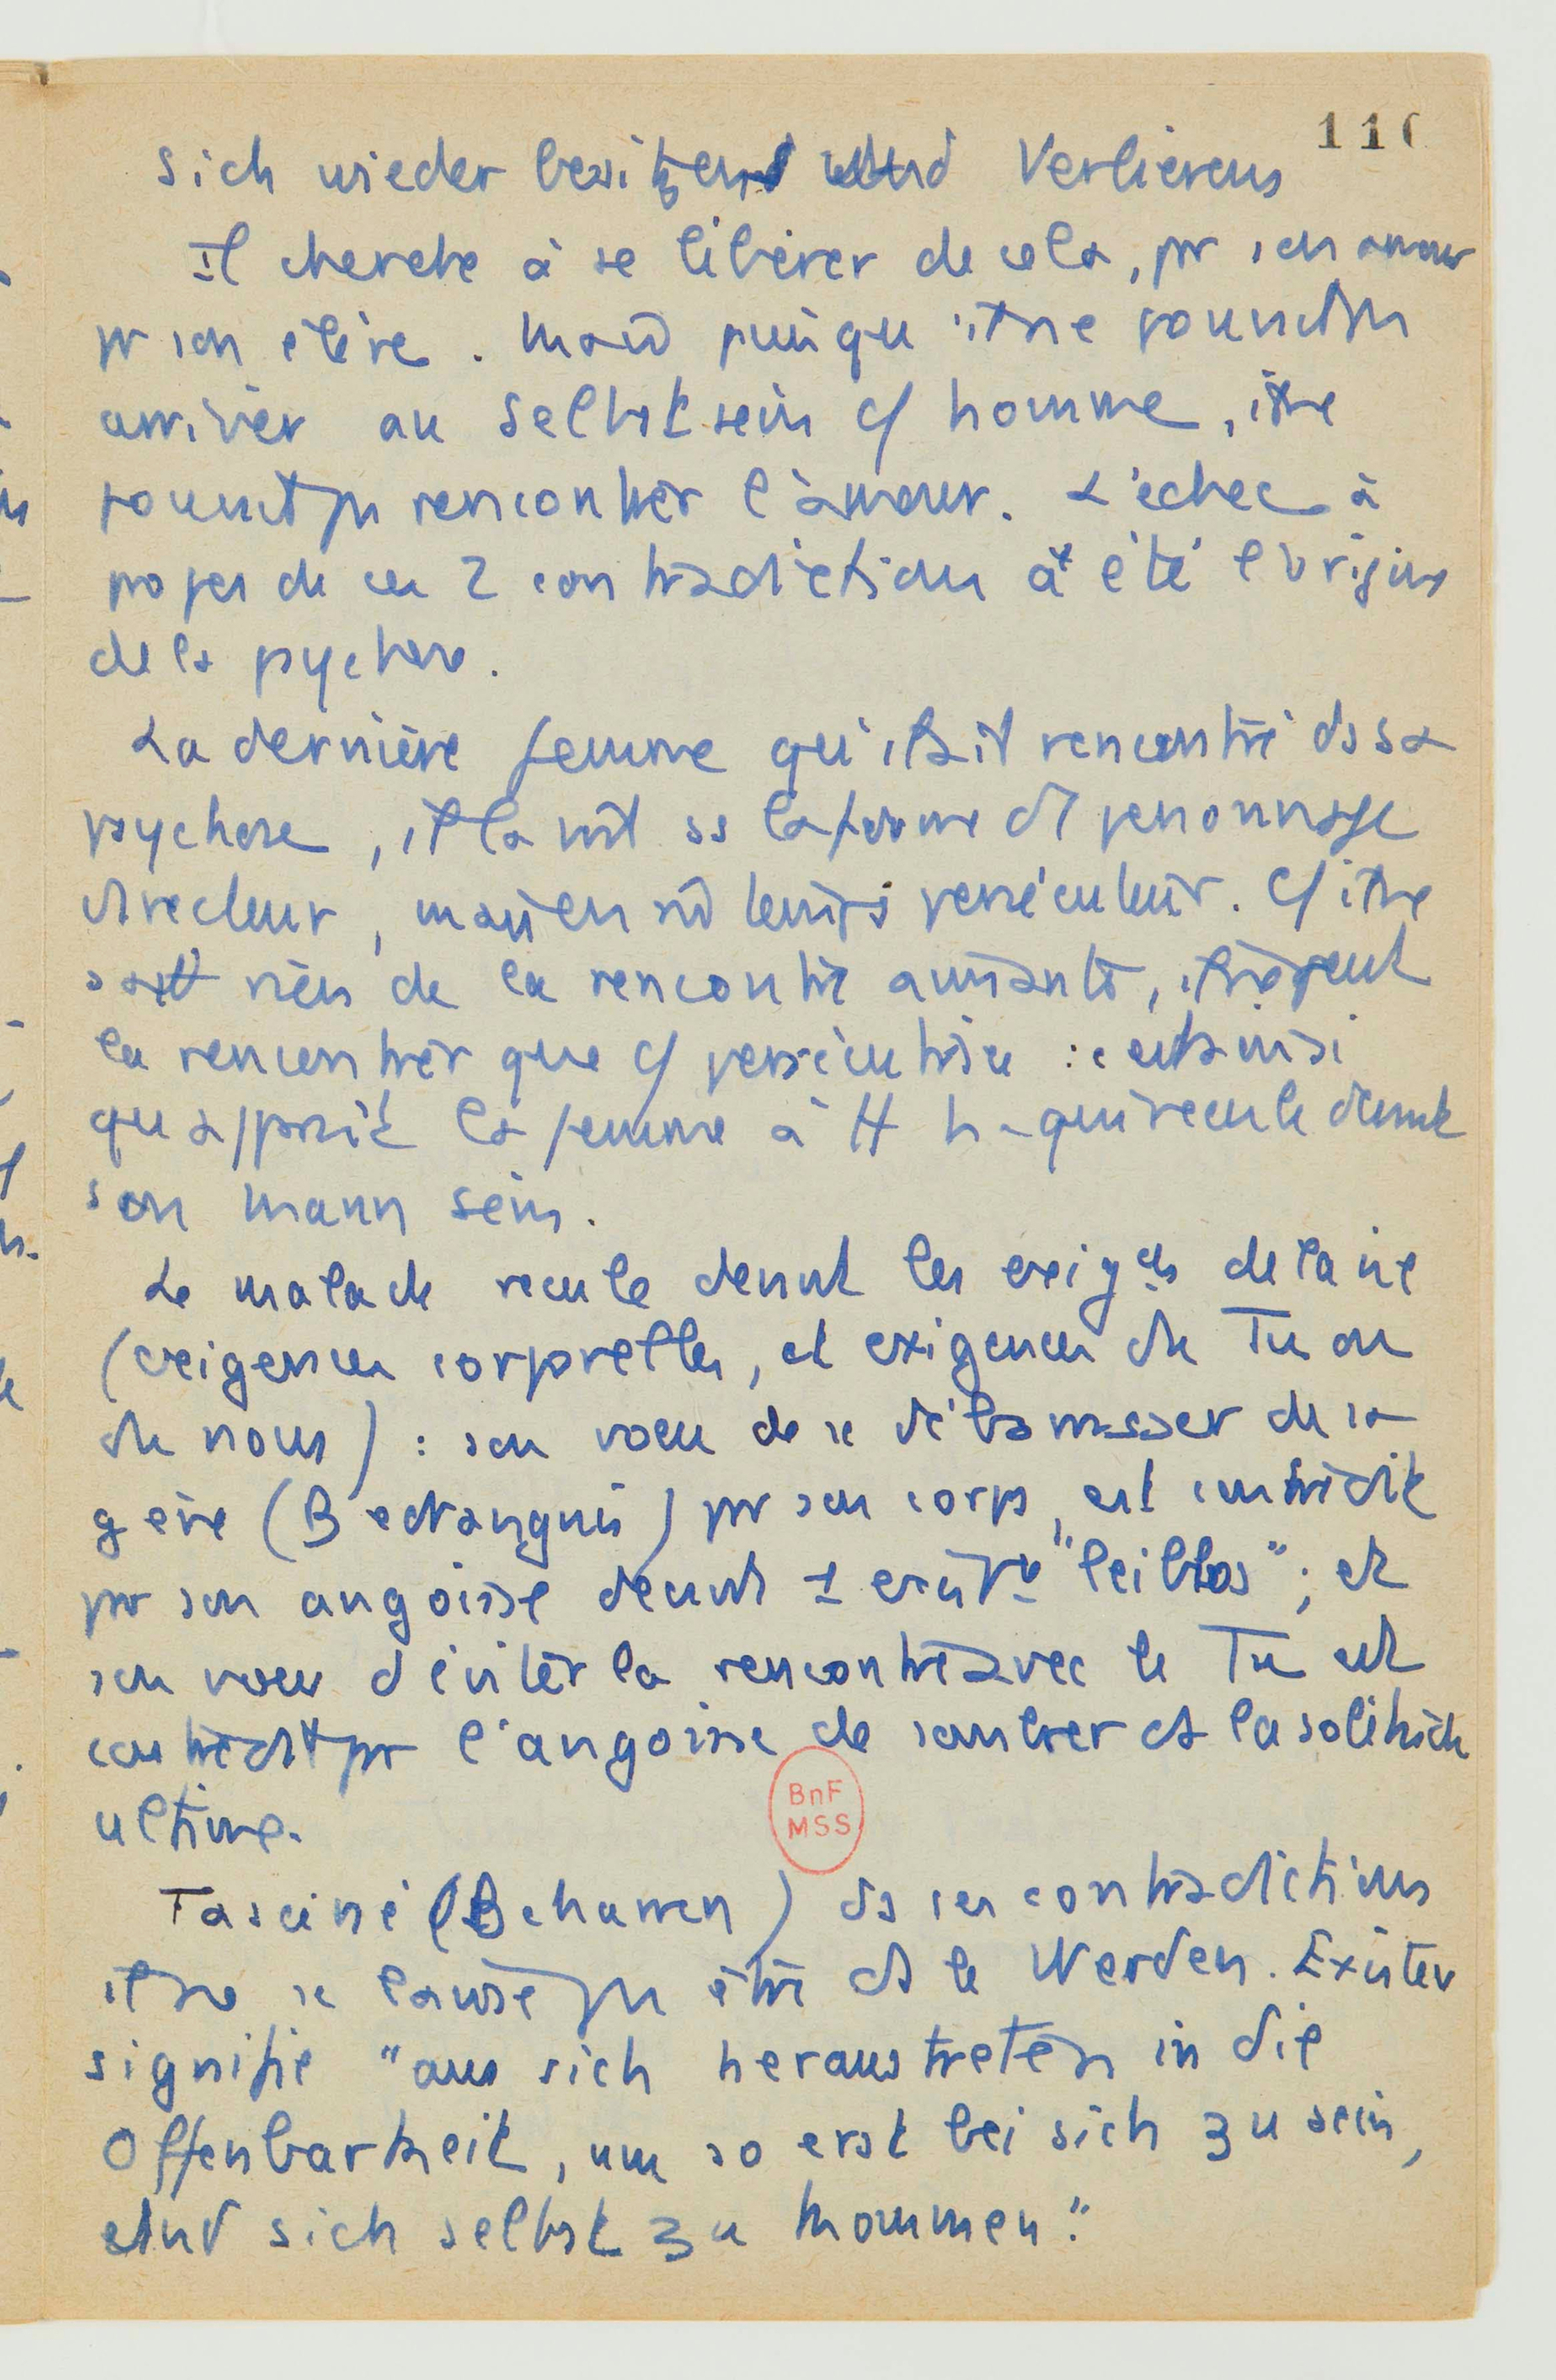 110
sich wieder besitzens und Verlierens
Il cherche à se libérer de cela, pr son amour
pr son élève. Mais puisqu'il ne pouvait pas
arriver au Selbstsein c/ homme, il ne
pouvait pas rencontrer l'amour. L'échec à
propos de ces 2 contradictions a été l'origine
de la psychose.
La dernière femme qu'il ait rencontré ds sa
psychose, il la voit ss la forme d'1 personnage
directeur, mais en m̂ temps persécuteur. C/ il ne
sait rien de la rencontre aimante, il ne peut
la rencontrer que c/ persécutrice : c'est ainsi
qu'apparaît la femme à H qui recule devant
son Mann sein.
Le malade recule devant les exigces de la vie
(exigences corporelles, et exigences du Tu ou
du nous) : son voeu de se débarrasser de sa
gêne (Bedrängnis) pr son corps, est contredit
pr son angoisse devant 1 existce "leiblos" ; et
son voeu d'éviter la rencontre avec le Tu est
contredit pr l'angoisse de sombrer ds la solitude
ultime.
BnF
MSS
Fasciné (Beharren) ds ses contradictions
il ne se laisse pas être ds le Werden. Exister
signifie "aus sich heraustreten in die
Offenbarkeit, um so erst bei sich zu sein,
und sich selbst zu kommen."